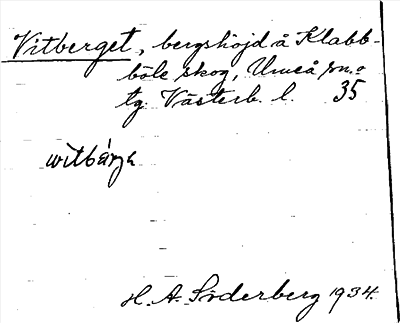 Vitberget, bergshöjd å Klabb-
böle skog, Umeå sn. o
tg. Västerb. l. 35
witbärje
H. A. Söderberg 1934.